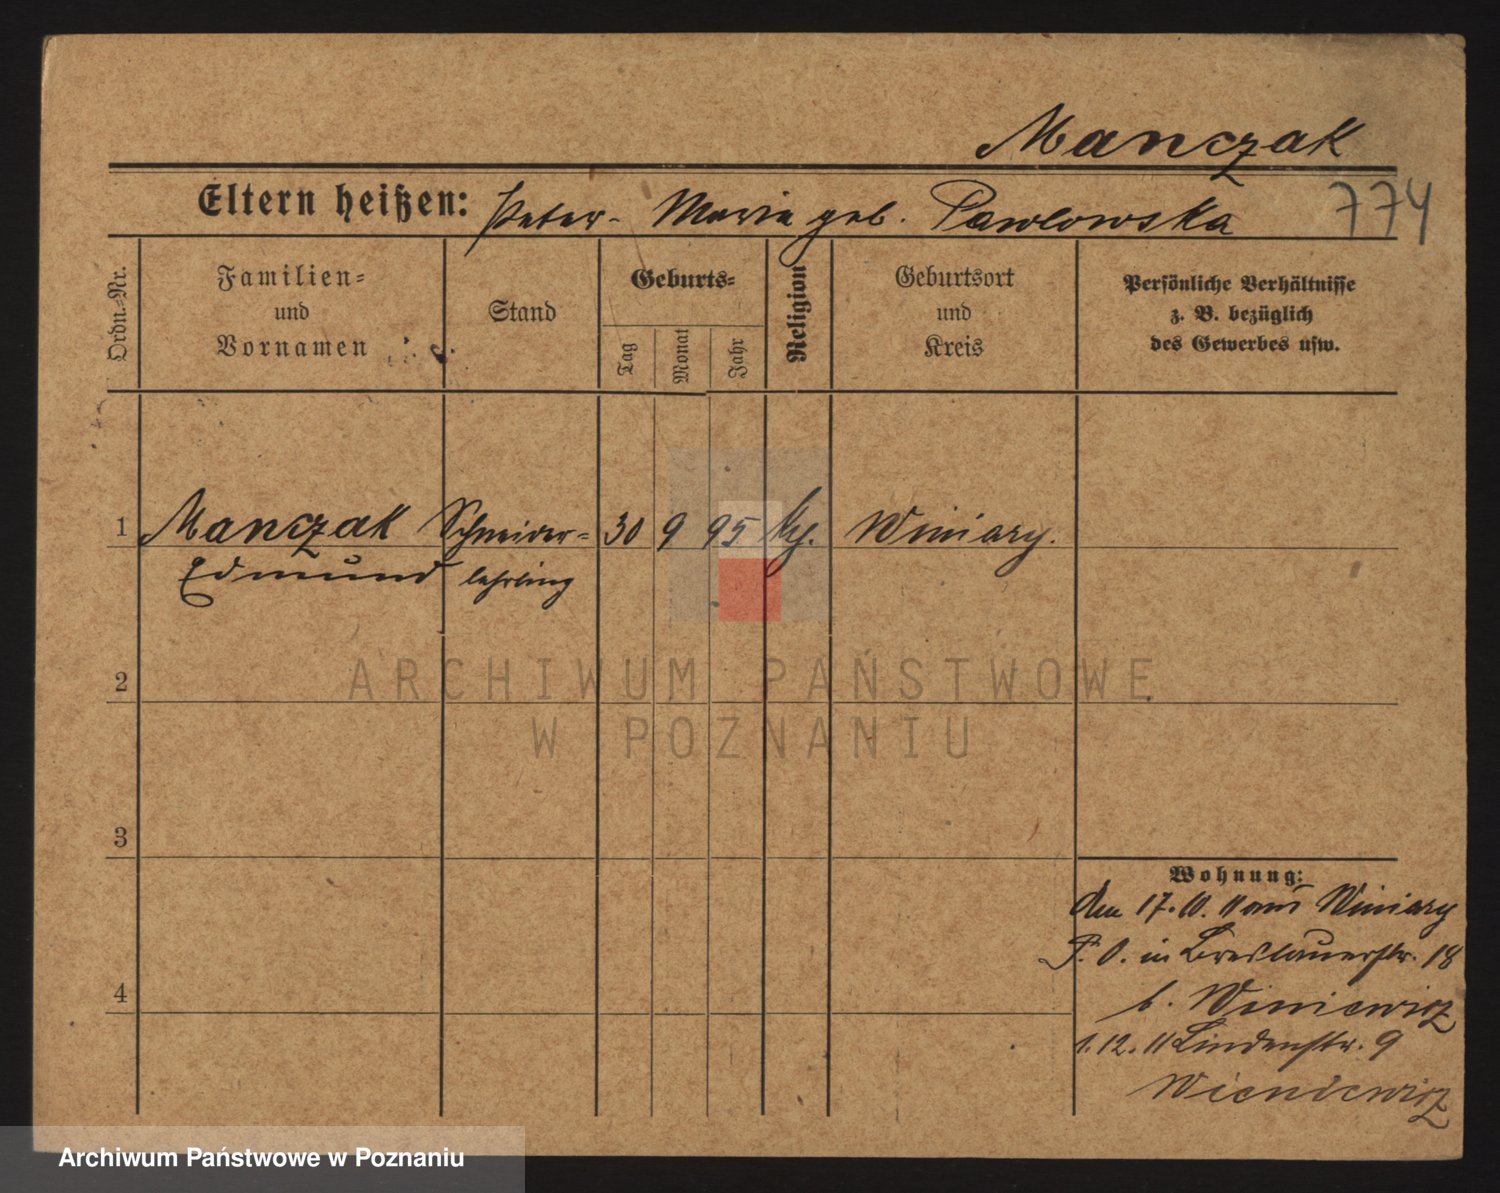 Manczak
Eltern heißen: Peter - Maria geb. Pawlowska
774
Ordn.-Nr.
Familien-
und
Vornamen
Stand
Geburts-
Tag
Monat
Jahr
Religion
Geburtsort
und
Kreis
Persönliche Verhältnisse
z. B. bezüglich
des Gewerbes usw.
1 Manczak Schneider- 30 9 95 Winiary.
Edmund lehrling
ARCHIWUM PAŃSTWOWE
W POZNANIU
2
3
4
Wohnung:
den 17. 10. 11 aus Winiary
P. O. in Breslauerstr. 18
b. Wieniewicz
1. 12. 11 Lindenstr. 9
Wieniewicz
Archiwum Państwowe w Poznaniu